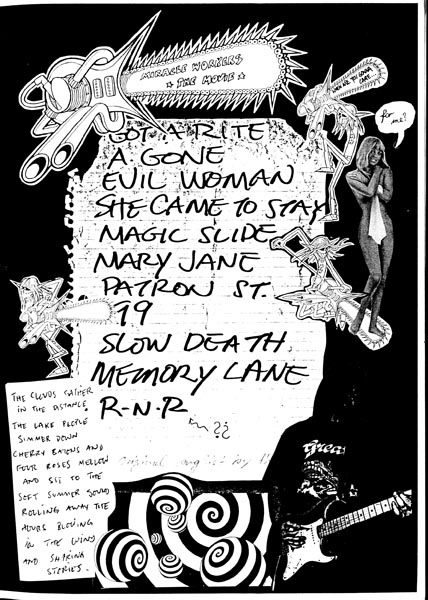 MIRACLE WORKERS
THE MOVIE
for me?
GOT A RITE
A GONE
EVIL WOMAN
SHE CAME TO STAY
MAGIC SLIDE
MARY JANE
PATRON ST.
19
SLOW DEATH
MEMORY LANE
R-N-R
??
THE CLOUDS GATHER
IN THE DISTANCE.
THE LAKE PEOPLE
SIMMER DOWN
CHERRY BATONS AND
FOUR ROSES MELLOW
AND SIT TO THE
SOFT SUMMER SOUNDS
ROLLING AWAY THE
HOURS BLOWING
IN THE WIND
AND SHARING
STORIES.
Original
by
Grease